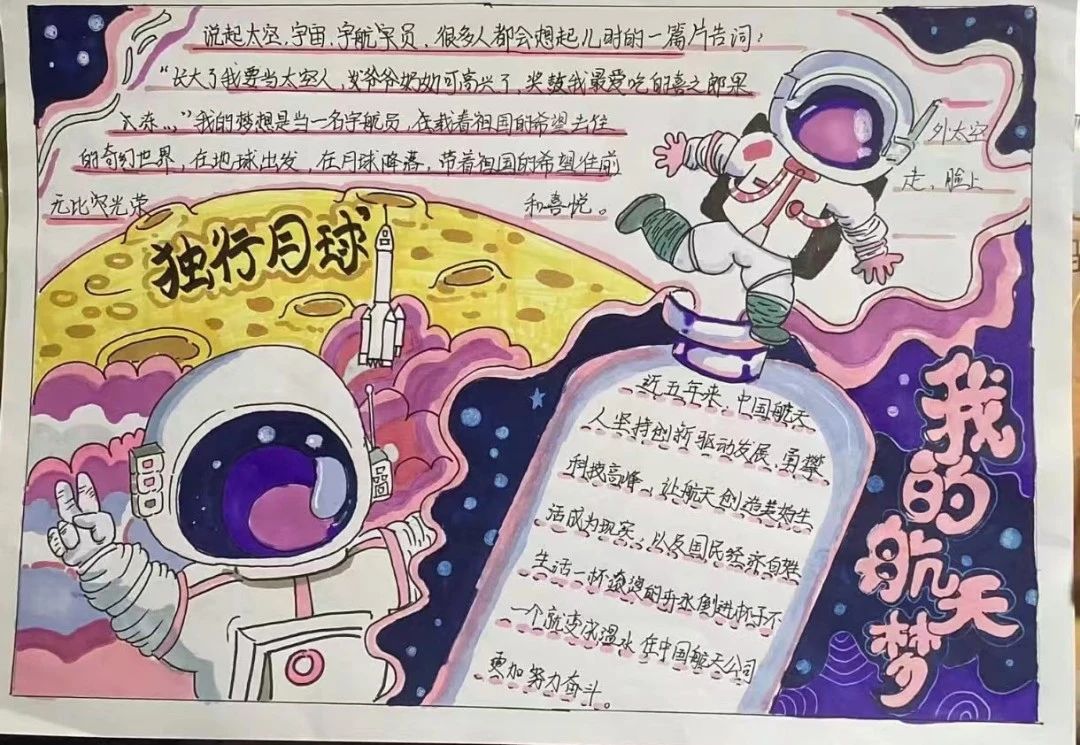 说起太空，宇宙，宇航宇员，很多人都会想起儿时的一篇片告词：
“长大了我要当太空人，爷爷奶奶可高兴了，奖整我最爱吃的喜之郎果
太冻...”我的梦想是当一名宇航员，在载着祖国的希望去住 外太空
的奇幻世界，在地球出发，在月球降落，带着祖国的希望往前 走，脸上
元比突光荣 和喜悦。
独行月球
近五年来，中国航天
人坚持创新驱动发展，勇攀
科技高峰，让航天创造美构生
活成为现实，以及国民经济自胜
生活一杯滚烫的开水倒进杯子不
一个就变成温水 在中国航天公司
更加努力奋斗。
我的航天梦